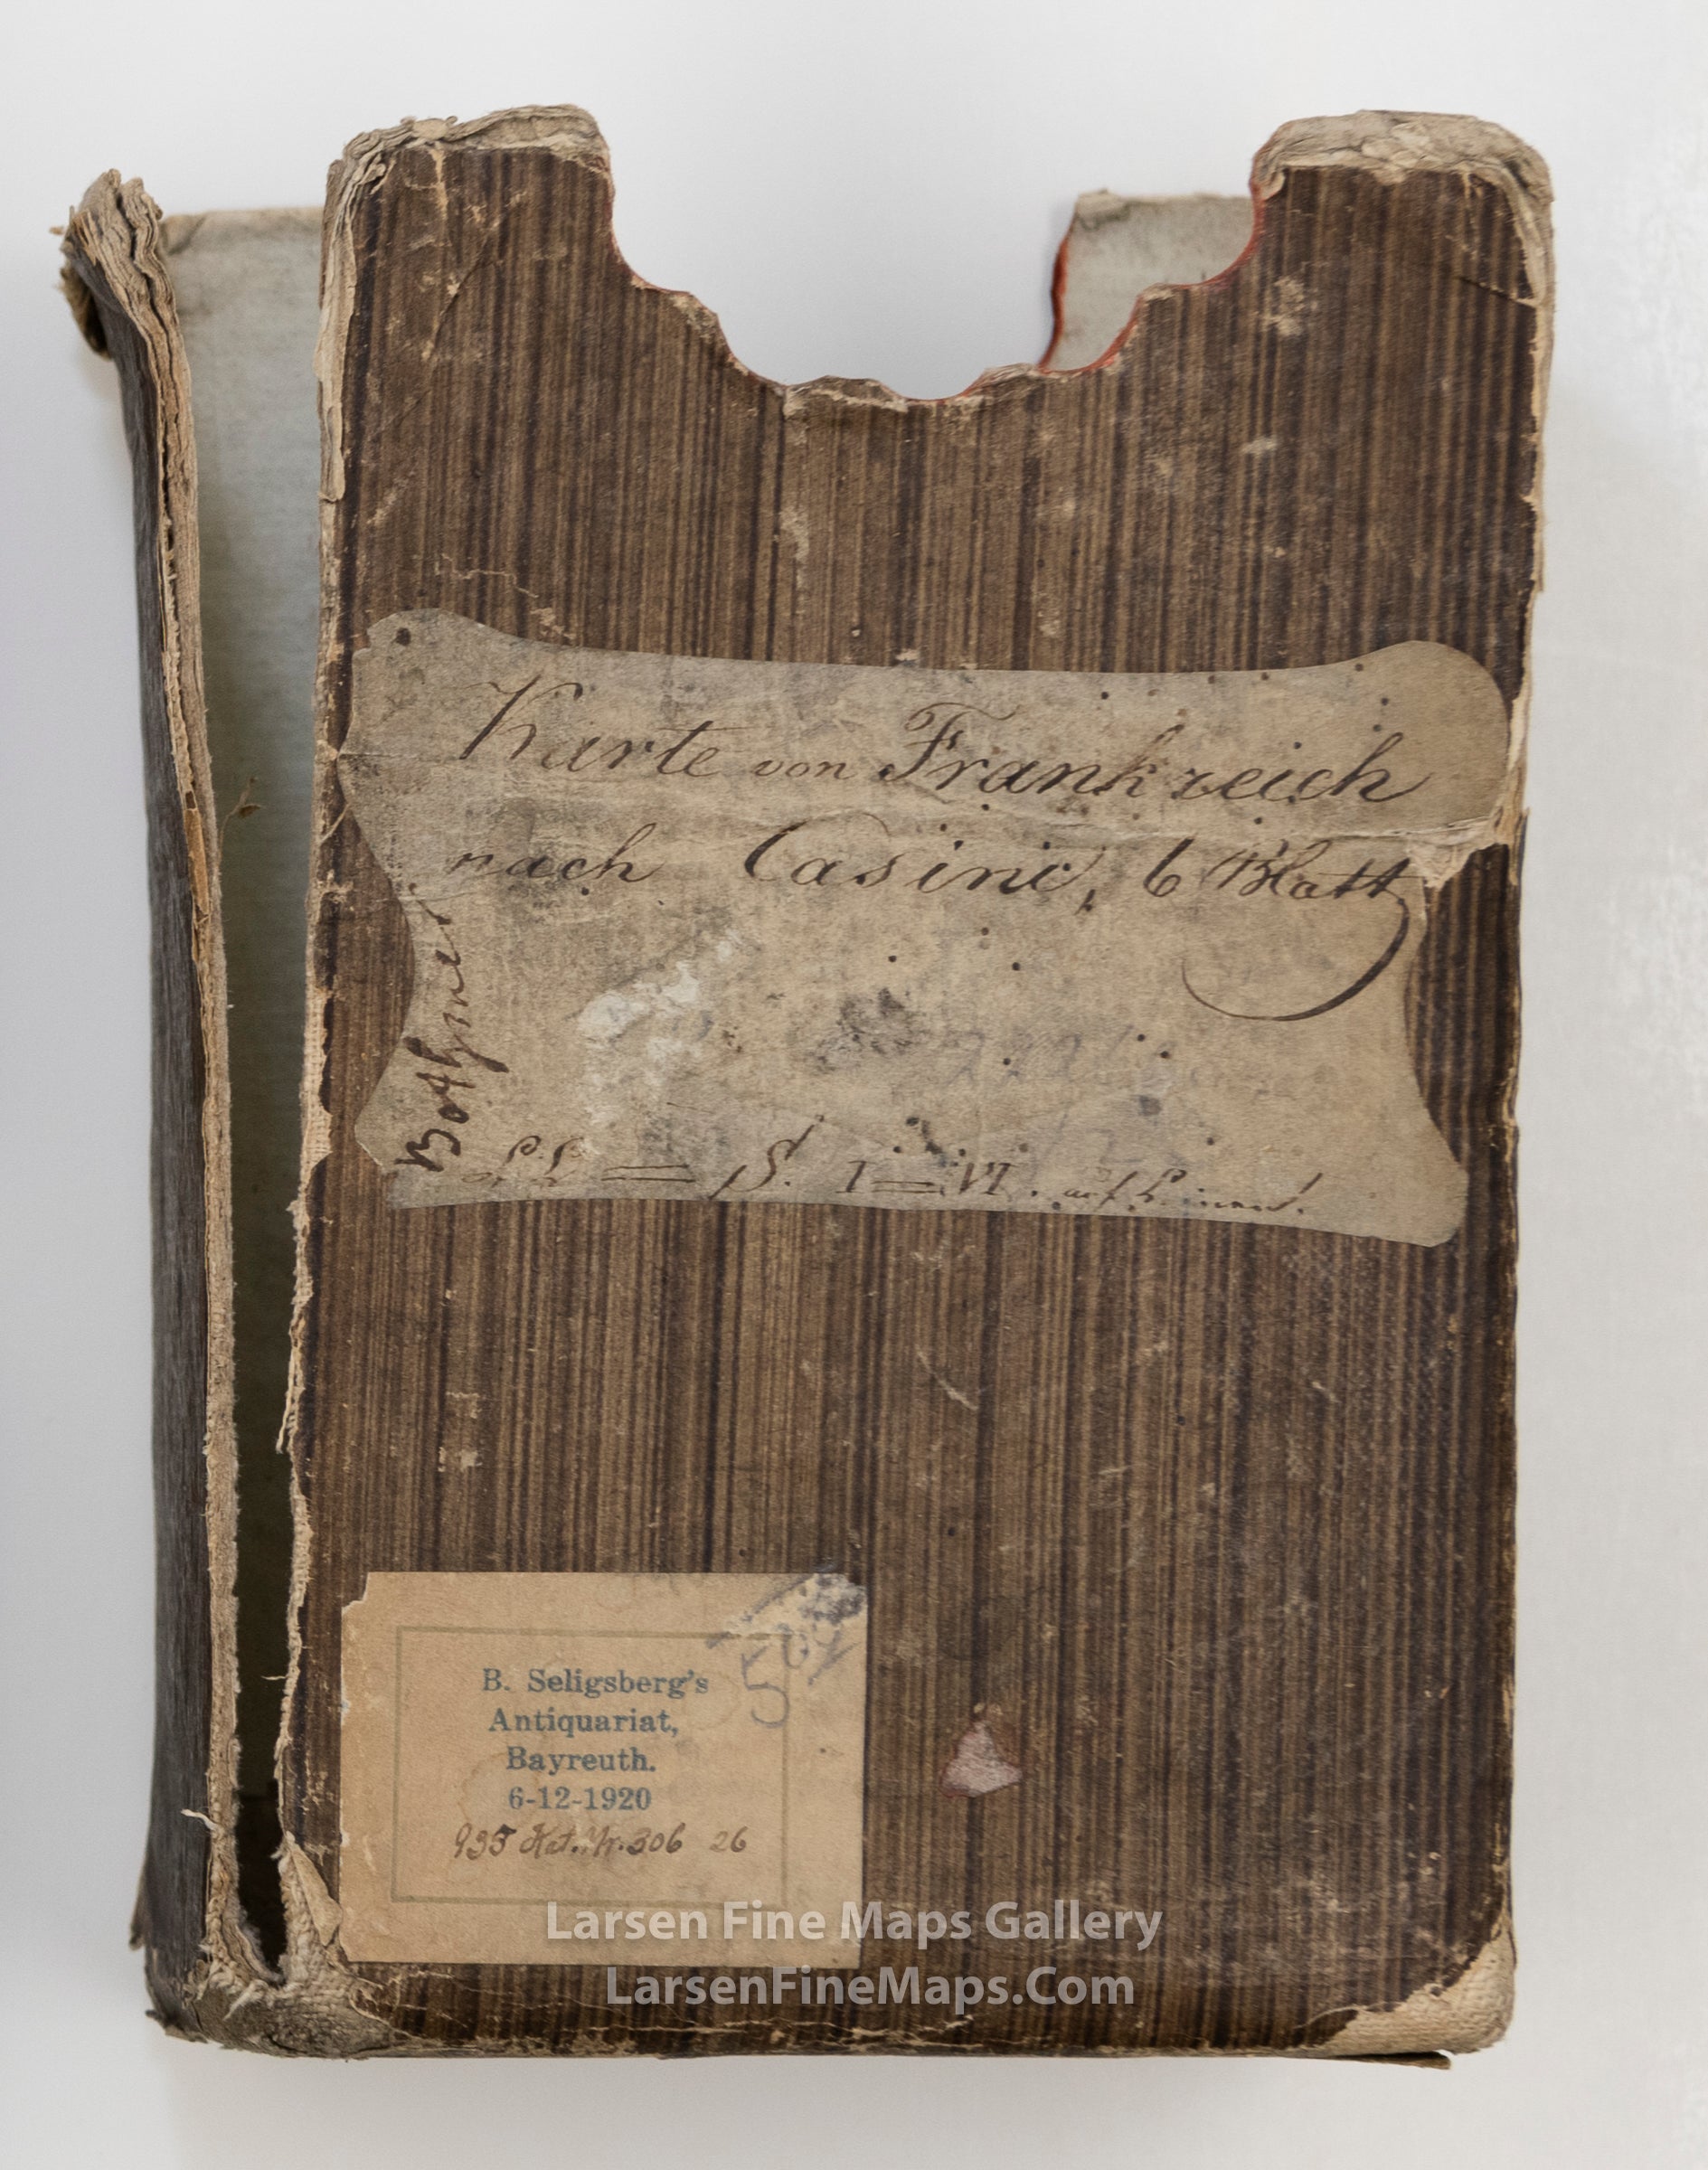 Karte von Frankreich
nach Casini, 6 Blatt
Bothmer
= S. I = VI. auf
5
B. Seligsberg's
Antiquariat,
Bayreuth.
6-12-1920
935 Kat. Nr. 306 26
Larsen Fine Maps Gallery
LarsenFineMaps.Com